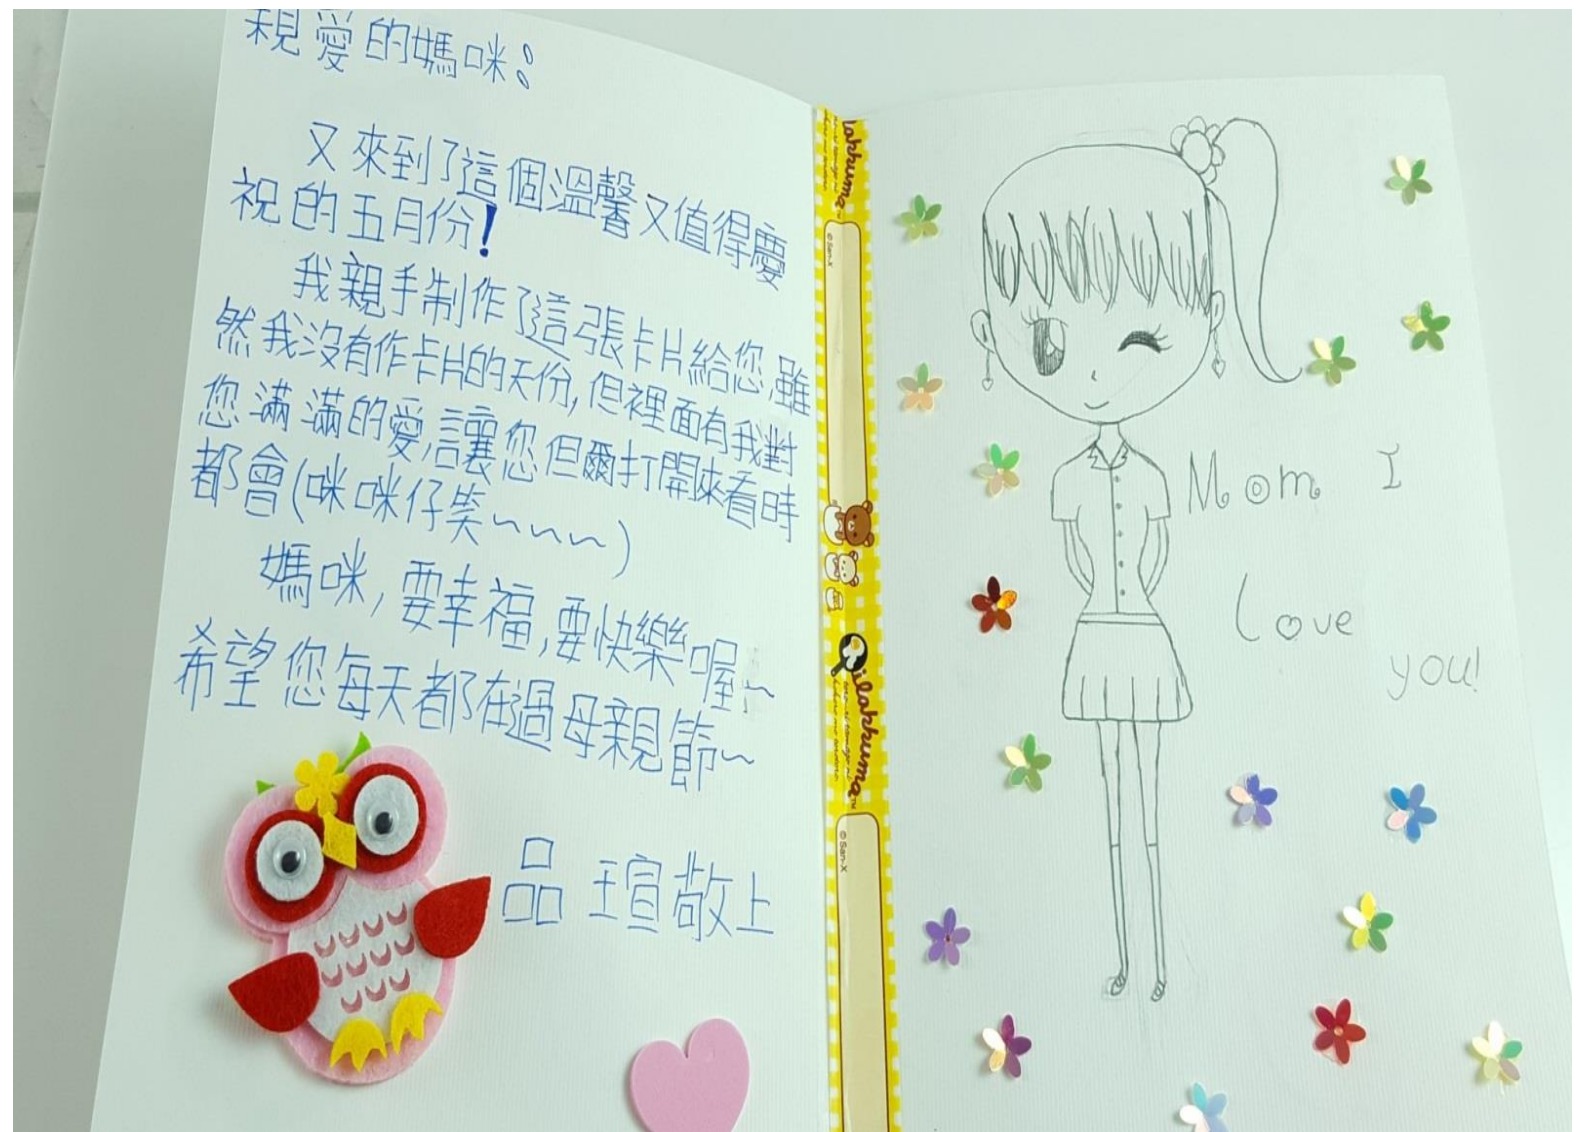 親愛的媽咪：
又來到了這個溫馨又值得慶
祝的五月份！
我親手制作了這張卡片給您,雖
然我沒有作卡片的天份,但裡面有我對
您滿滿的愛,讓您但爾打開來看時
都會(咪咪仔笑~~~~)
媽咪,要幸福,要快樂喔!~
希望您每天都在過母親節~
品瑄敬上
ilakkuma
© San-X
Rilakkuma
© San-X
Mom I
Love
you!